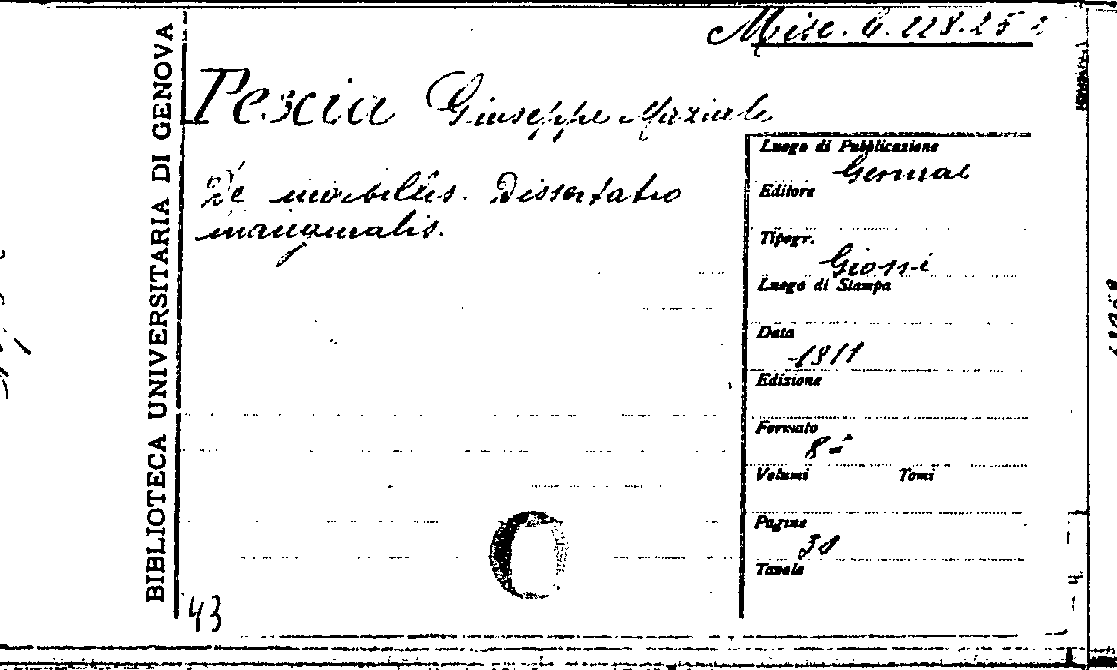 Misc. G. 228.25
Pescia Giuseppe Maziale
BIBLIOTECA UNIVERSITARIA DI GENOVA
De morbillis. Dissertatio
inauguralis.
Luogo di Pubblicazione
Genuae
Editore
Tipogr.
Giossi
Luogo di Stampa
Data
1811
Edizione
Formato
8º
Volumi Tomi
Pagine
30
Tavole
43